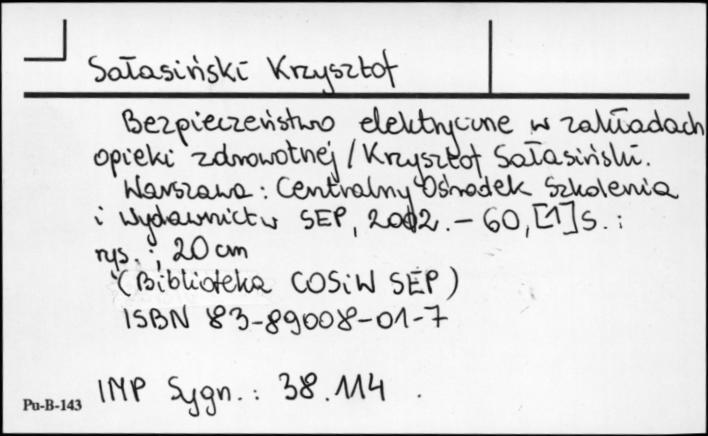 Sałasiński Krzysztof
Bezpieczeństwo elektryczne w zakładach
opieki zdrowotnej / Krzysztof Sałasiński.
Warszawa : Centralny Ośrodek Szkolenia
i Wydawnictw SEP, 2002. – 60, [1] s. :
rys. ; 20 cm
(Biblioteka COSiW SEP)
ISBN 83-89008-01-7
IMP Sygn. : 38.114 .
Pu-B-143